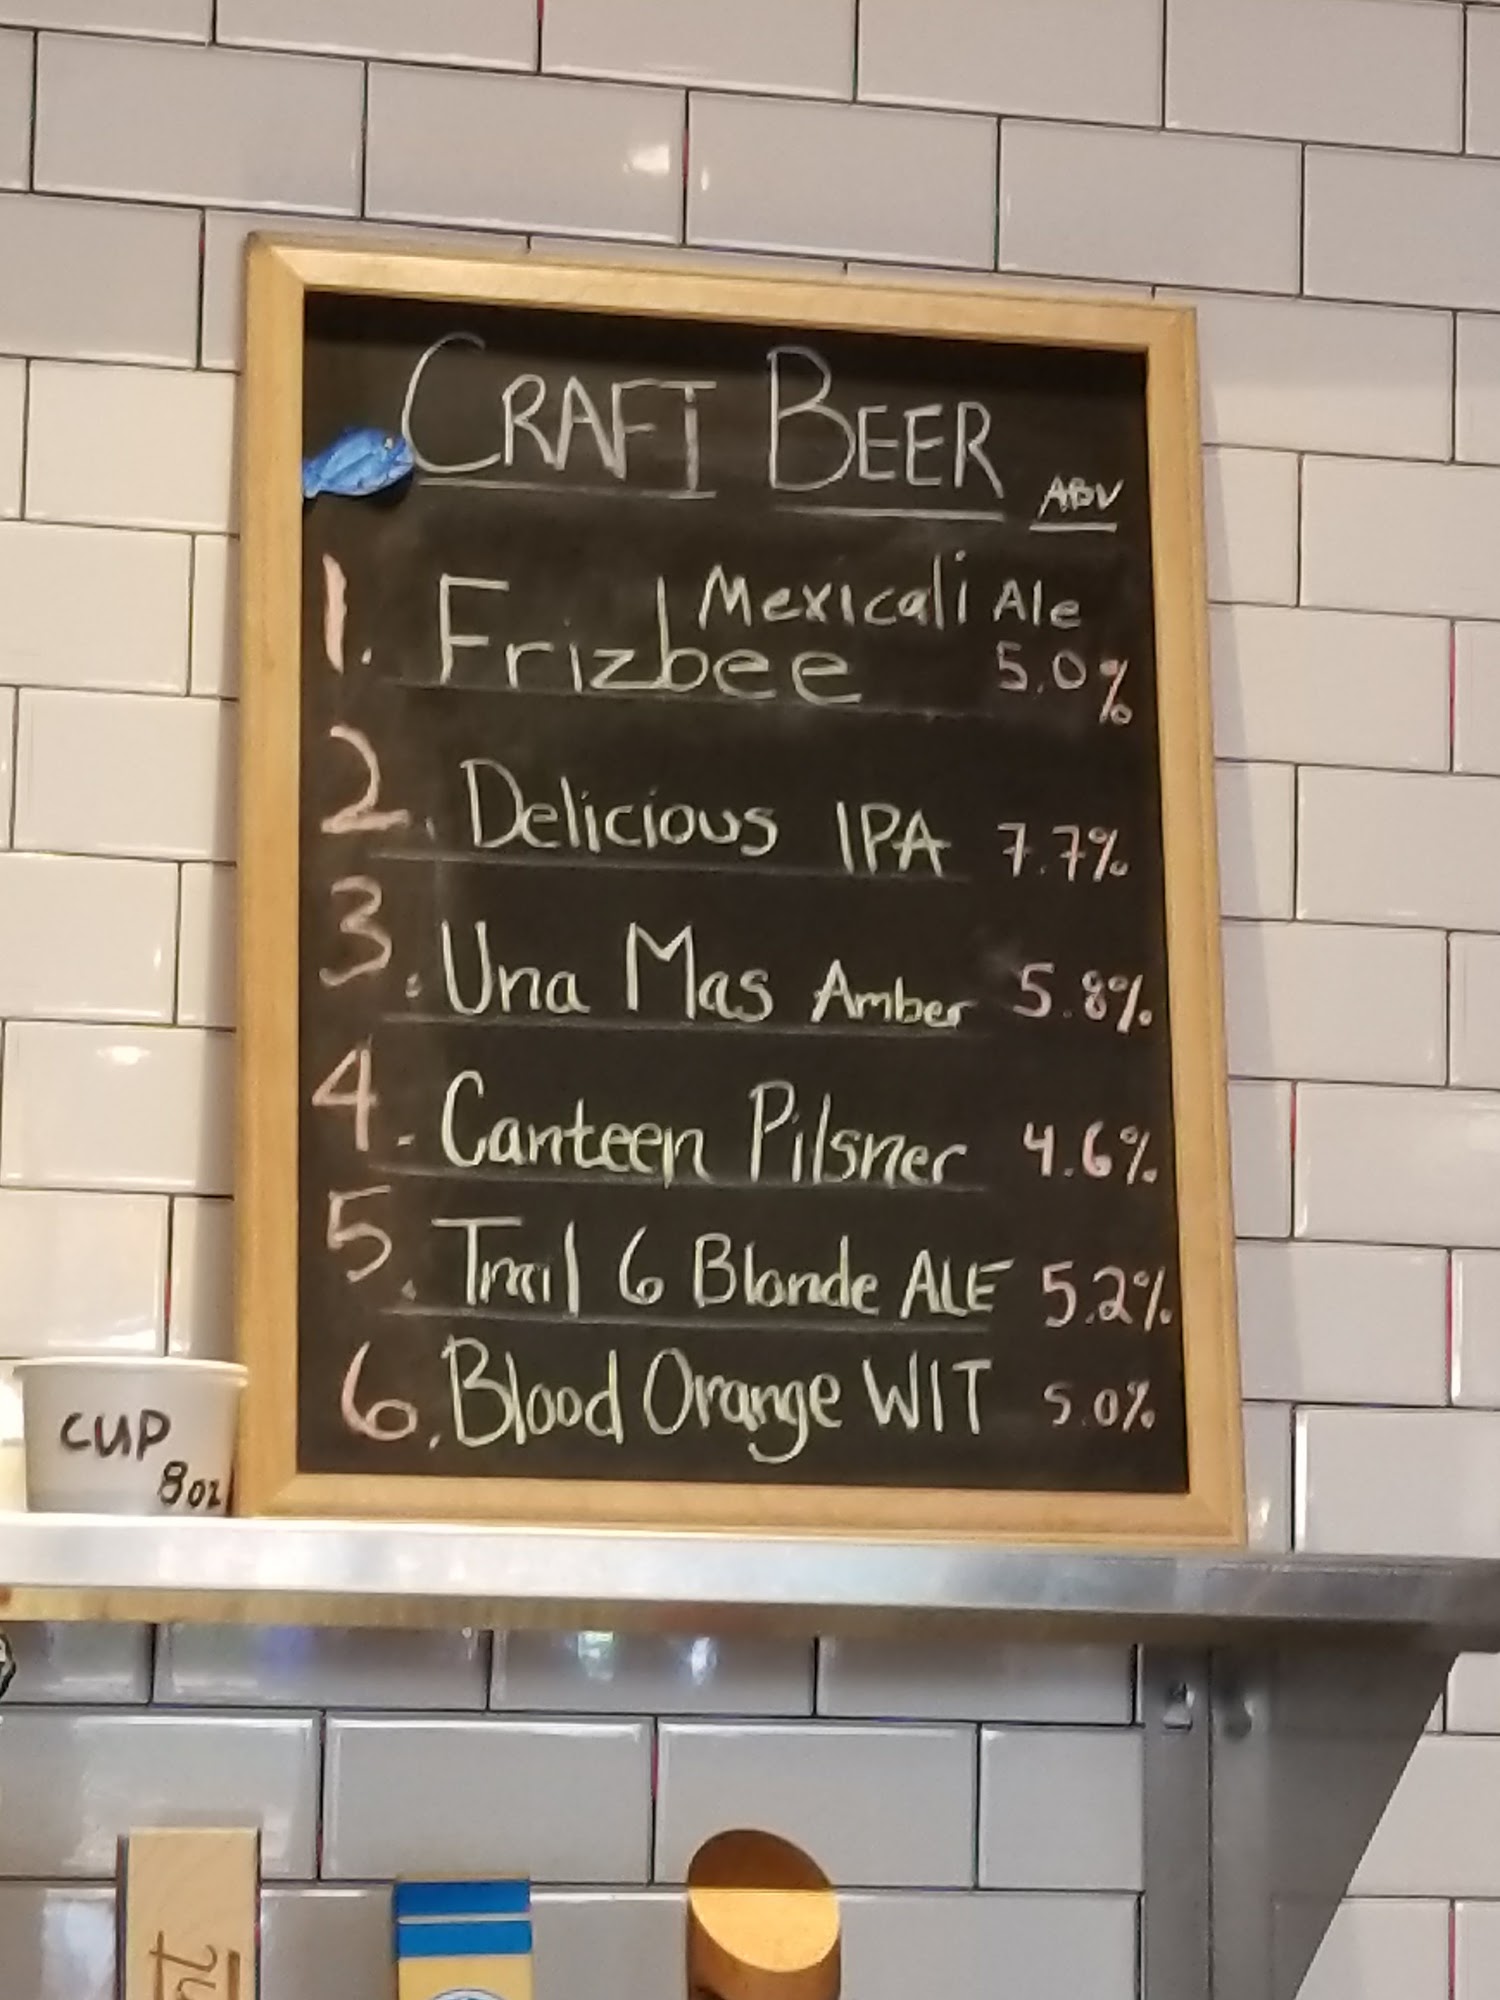 CRAFT BEER
ABV
1. Frizbee Mexicali Ale 5.0%
2. Delicious IPA 7.7%
3. Una Mas Amber 5.8%
4. Canteen Pilsner 4.6%
5. Trail 6 Blonde ALE 5.2%
6. Blood Orange WIT 5.0%
CUP
8oz